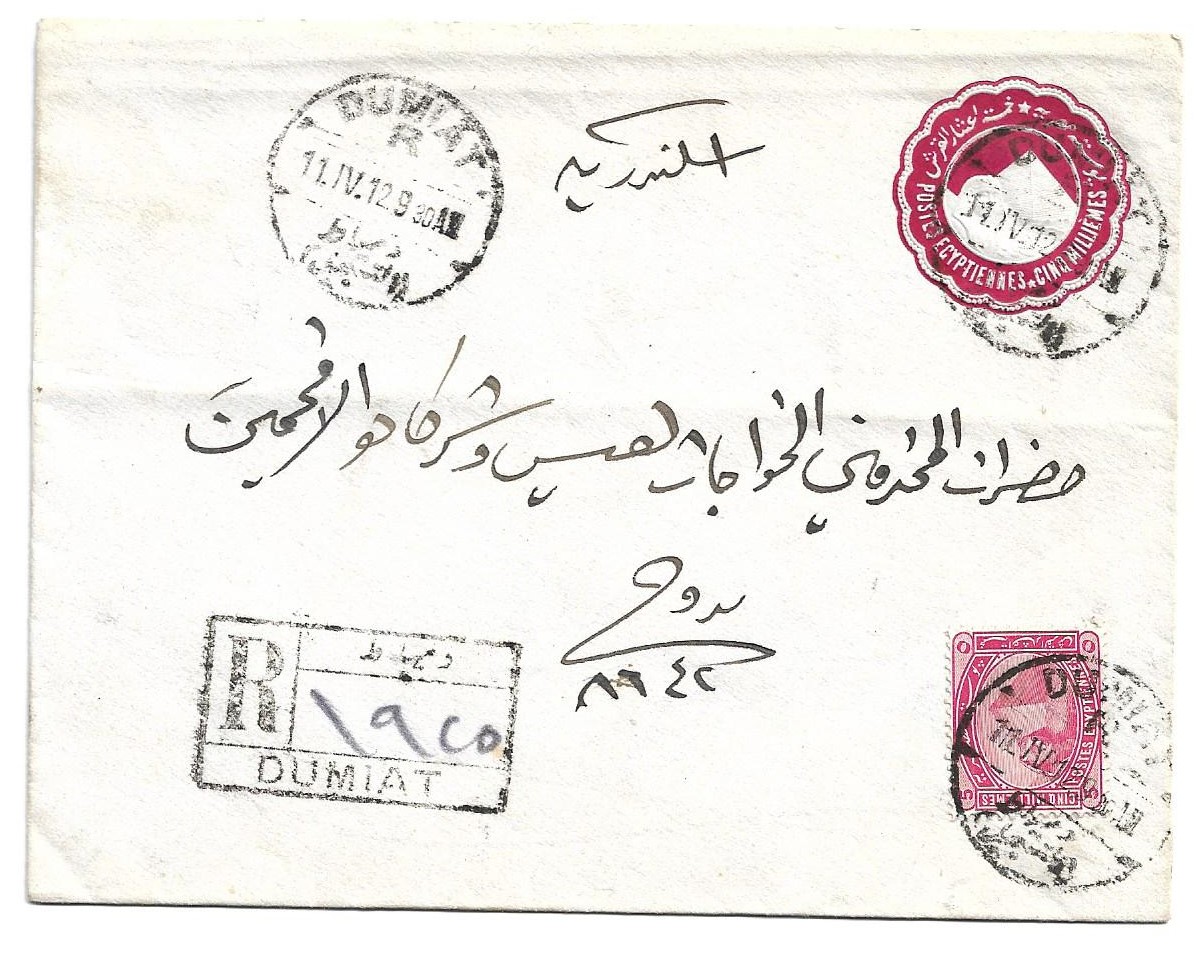 DUMIAT
R
11.IV.12.9 30AM
دمياط
اسكندريه
خمسة اعشار القرش
POSTES EGYPTIENNES ★ CINQ MILLIEMES
11.IV.12
حضرات المحترمين الخواجات لعيس وشركاهو الافخمين
بدوح
٨٦٤٢
R
دمياط
١٩٢٥
DUMIAT
POSTES EGYPTIENNES
CINQ MILLIEMES
5
5